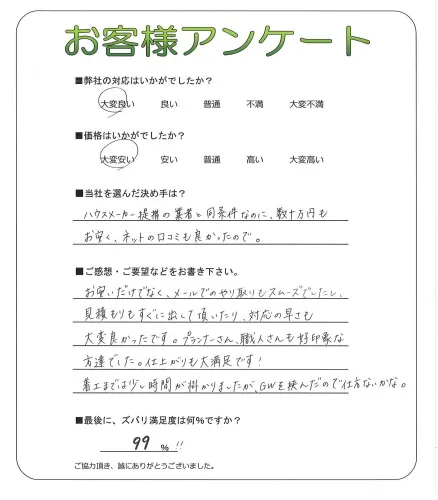 お客様アンケート
■弊社の対応はいかがでしたか？
大変良い 良い 普通 不満 大変不満
■価格はいかがでしたか？
大変安い 安い 普通 高い 大変高い
■当社を選んだ決め手は？
ハウスメーカー提携の業者と同条件なのに、数十万円も
お安く、ネットの口コミも良かったので。
■ご感想・ご要望などをお書き下さい。
お安いだけでなく、メールでのやり取りもスムーズでしたし、
見積もりもすぐに出して頂いたり、対応の早さも
大変良かったです。プランナーさん、職人さんも好印象な
方達でした。仕上がりも大満足です！
着工までは少し時間が掛かりましたが、GWを挟んだので仕方ないかな。
■最後に、ズバリ満足度は何％ですか？
99 ％ !!
ご協力頂き、誠にありがとうございました。